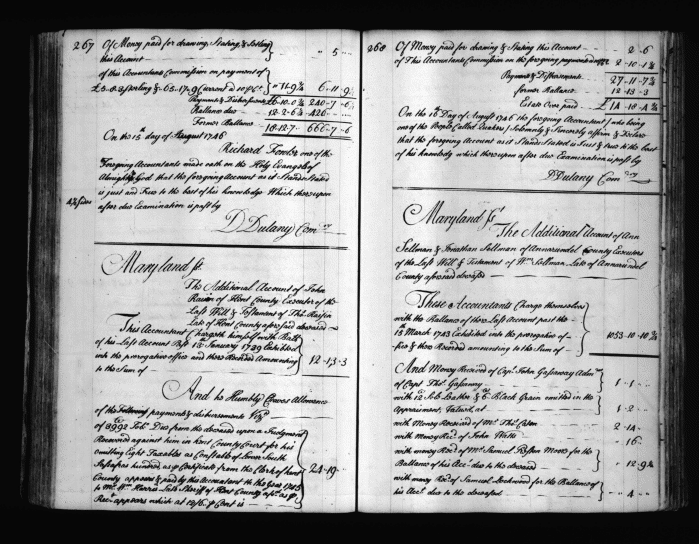 267 Of Money paid for drawing, Stating, & Setling
this Account " 5 "
of this Accountants Commission on payment of
6 - 11 - 9
Payments & Disbursements 240 - 7 - 6
Ballance due 12 - 2 - 6 426
Former Ballance 10 - 12 - 7 666 - 7 - 6
On the 15th day of August 1746
Richard Fowler one of the
Foregoing Accountants made oath on the Holy Evangels of
Almighty God that the foregoing Account as it Stands Stated
is just and True to the best of his knowledge Which thereupon
after due Examination is past by
D Dulany Com ry
Maryland ss.
The Additional Account of John
Rasin of Kent County Executor of the
Last Will & Testament of Thos. Rasin
Late of Kent County aforesaid deceased
This Accountant Chargeth himself with Ball
of his Last Account Past January 1739 Exhibited
into the prerogative office and there Recorded Amounting
to the Sum of 12 - 13 - 3
And he Humbly Craves Allowance
of the Following payments & disbursements Vizt
of 3992 Tobo Due from the deceased upon a Judgment
Recovered against him in Kent County Court for his
omitting Eight Taxables as Constable of Lower South
Certificate from the Clerk of Kent
County appears & paid by this Accountant
to Mr. Wm. Harris Late Sheriff of Kent County
Rect appears which at 12/6 Cent is 24 - 19 -
268 Of Money paid for drawing & Stating this Account 2 - 6
of This Accountants Commission on the foregoing payments 2 - 10 -
Payments & Disbursements 27 - 11 - 7
former Ballance 12 - 13 - 3
Estate Over paid £ 14 - 18 - 4
On the 18 Day of August 1746 the foregoing Accountant (who being
one of the People Called Quakers) Solemnly & Sincerely affirm & Declare
that the foregoing Account as it Stands Stated is Just & true to the best
of his knowledg which thereupon after due Examination is past by
D Dulany Com ry
Maryland ss.
The Additional Account of Ann
Sellman & Jonathan Sellman of Annarundel County Executors
of the Last Will & Testament of Wm. Sellman Late of Annarundel
County aforesaid deceased
These Accountants Charge themselves
with the Ballance of their Last Account past the
12 March 1743 Exhibited into the prerogative of-
fice & there Recorded amounting to the Sum of 1033 - 10 - 10
And Money Received of Capt. John Gassaway Admr
of Capt Thos. Gassaway 1 - 1 -
with 12 Sole Leather & Black Grain omitted in the
Appraisment, Valued at 1 - 2 -
with Money Received of Mr. Thos.
with money Recd of John Watts - 16 -
with money Recd of Mr. Samuel for the
Ballance of his Acct due to the deceased 12 - 9
with money Recd of Samuel Lockwood for the Ballance of
his Acct due to the deceased 4